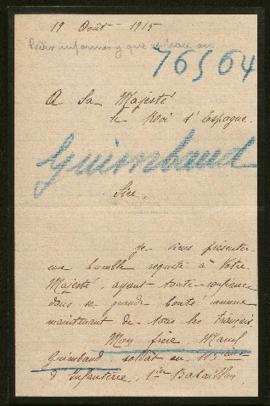 19 Août - 1915
Pedir informes y que
76564
A Sa Majesté
le Roi d'Espagne.
Guimbaud
Sire,
je viens présenter
une humble requête à Votre
Majesté, ayant toute confiance
dans sa grande bonté connue
maintenant de tous les français
Mon frère
Guimbaud soldat au
d'Infanterie, 1ier Bataillon